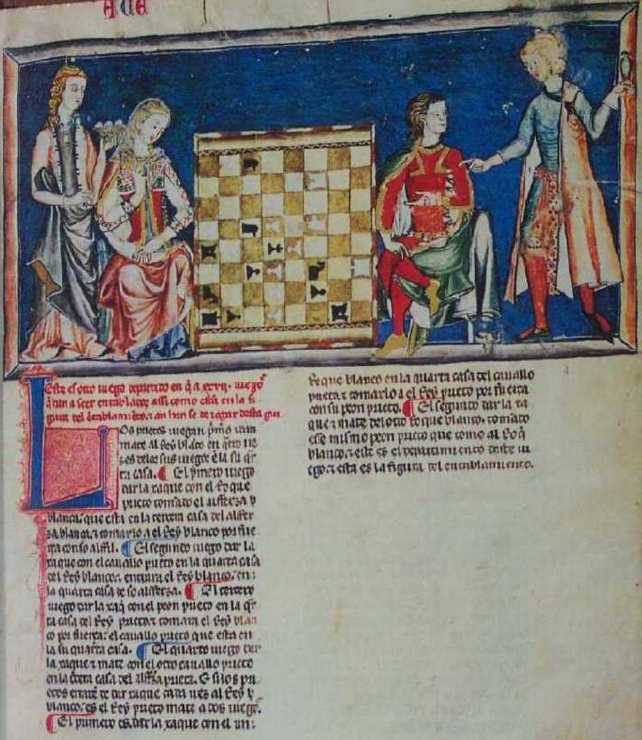 Este es otro iuego departido en q̃ a xxvij. iuegos
q̃ han a seer entablados assi como esta en la fi
gura del entablamiento. ⁊ an se de iogar desta guisa
Los prietos iuegan primero ⁊ dan
mate al Rey blanco en
de sus iuegos en la su q̃r
ta casa. El primero iuego
dar la xaque con el Roque
prieto tomando el alfferza
blanca. que esta en la tercera casa del alffer
za blanca. ⁊ tomarlo a el Rey blanco por fuer
ça con so alffil. El segundo iuego dar la
xaque con el cauallo prieto en la quarta casa
del Rey blanco. ⁊ entrara el Rey blanco. en
la quarta casa de so alfferza. El tercero
iuego dar la xaq̃ con el peon prieto en la q̃r
ta casa del Rey prieto. ⁊ tomara el Rey blan
co por fuerça. el cauallo prieto que esta en
la su quarta casa. El quarto iuego dar
la xaque ⁊ mate con el otro cauallo prieto
en la casa del alffil prieto. E si los pri
etos de dar xaque cada uez al Rey
blanco. es el Rey prieto mate a dos iuegos.
El primero es. dar la xaque con el un
Roque blanco en la quarta casa del cauallo
prieto. ⁊ tomarlo a el Rey prieto por fuerça
con su peon prieto. El segundo dar la xa
que ⁊ mate del otro Roque blanco. tomando
esse mismo peon prieto que tomo al Roq̃
blanco. ⁊ este es el departimiento deste iu
ego. ⁊ esta es la figura del entablamiento.